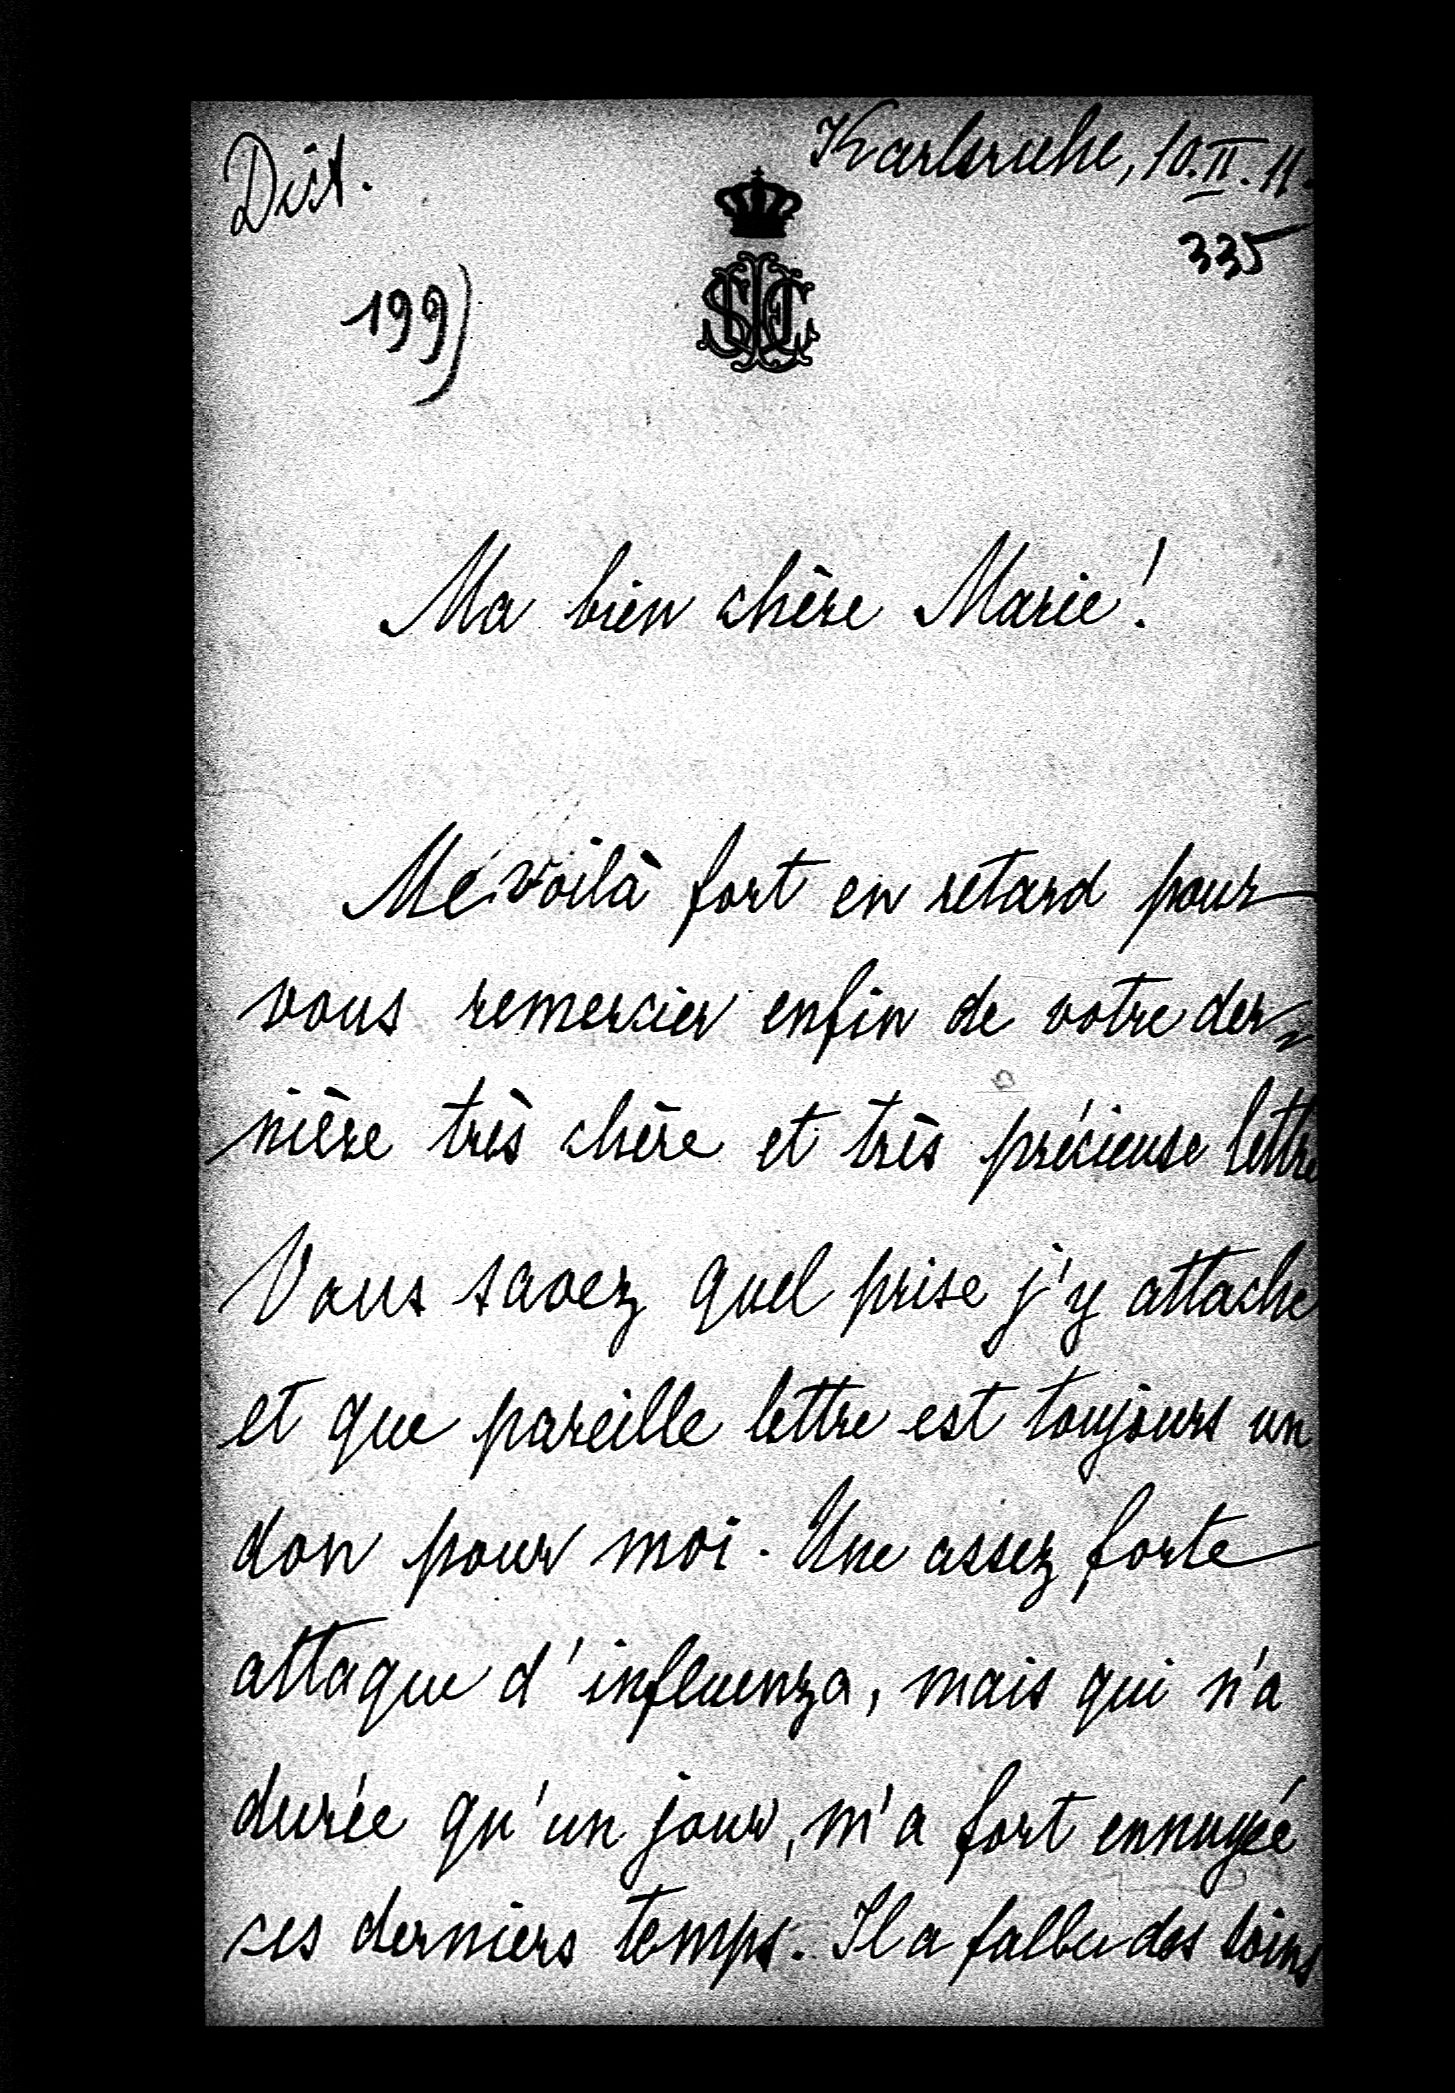 Dict.
Karlsruhe, 10.II.11.
335
199)
Ma bien chère Marie!
Me voilà fort en retard pour
vous remercier enfin de votre der-
nière très chère et très précieuse lettre
Vous savez quel prise j'y attache
et que pareille lettre est toujours un
don pour moi. Une assez forte
attaque d'influenza, mais qui n'a
durée qu'un jour, m'a fort ennuyée
ces derniers temps. Il a fallu des soins